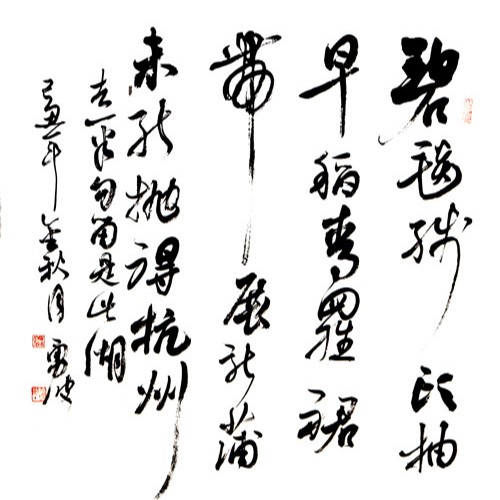 碧毯线头抽
早稻青罗裙
带展新蒲
未能抛得杭州
去一半勾留是此湖
己丑年金秋月